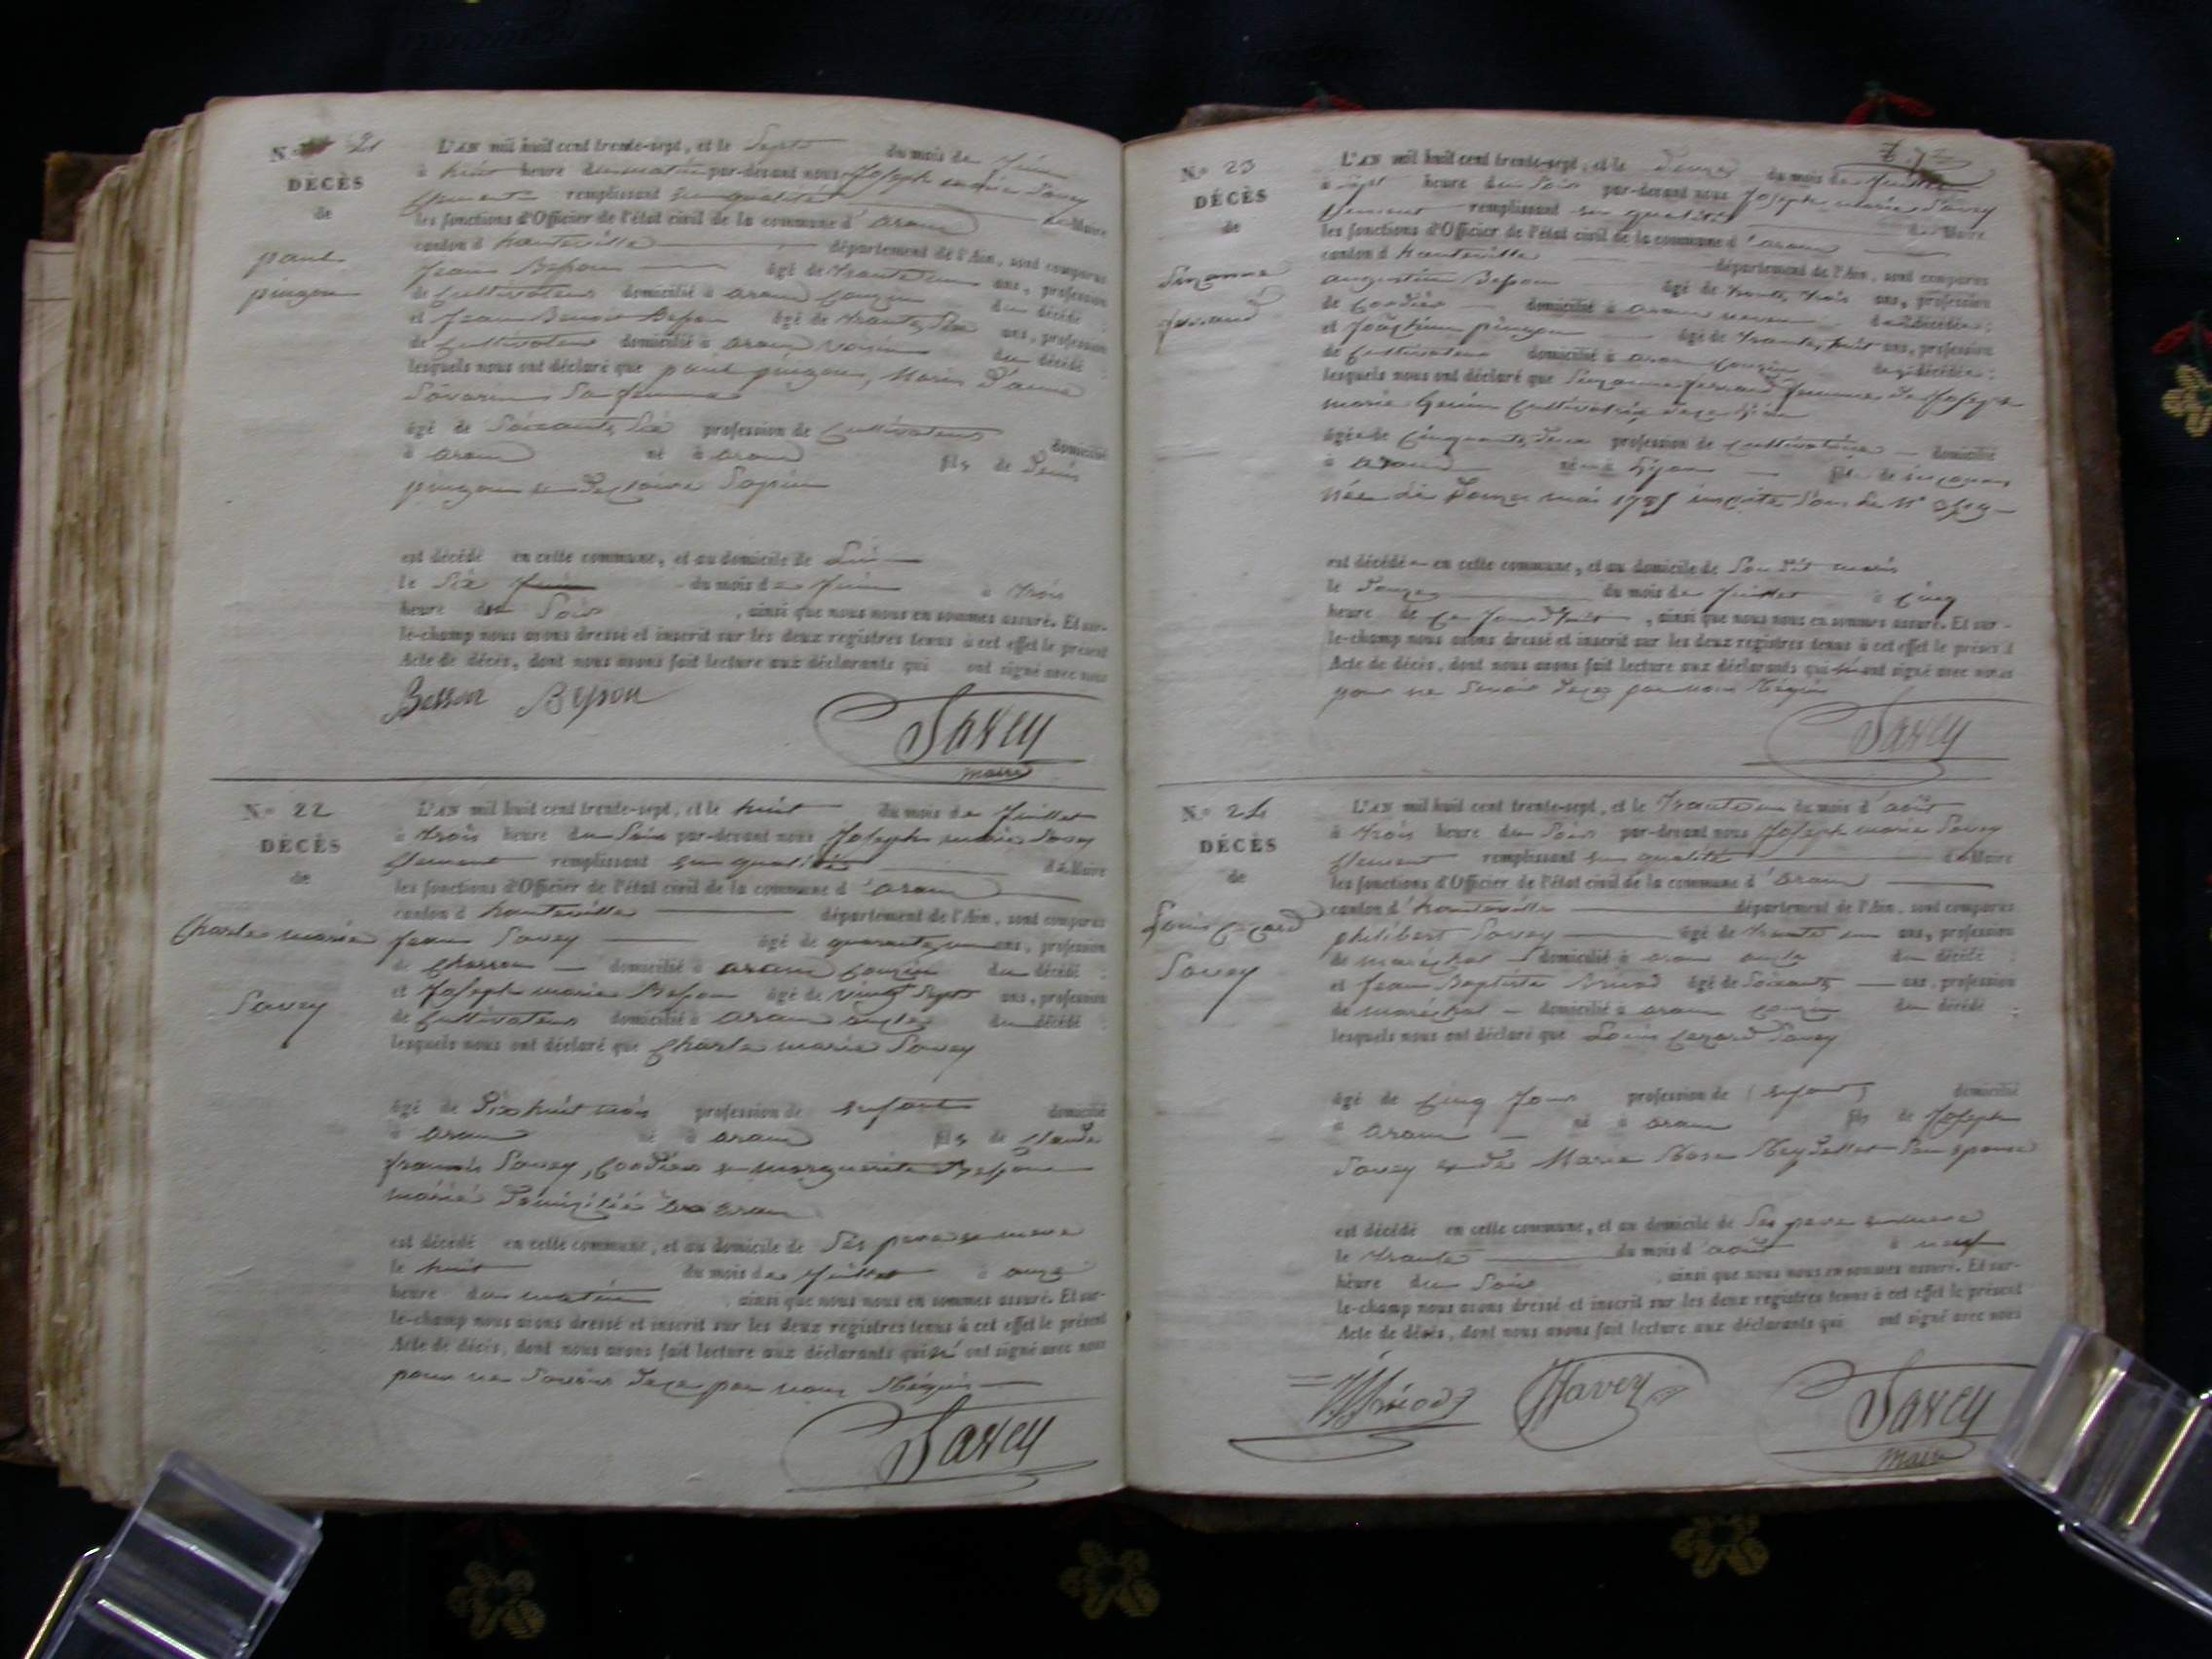 N° 21
DÉCÈS
de
paul
pingon
L'AN mil huit cent trente-sept, et le Septs du mois de Juin
à huit heure du matin par-devant nous Joseph marie Savey
Clement remplissant en qualité de Maire
les fonctions d'Officier de l'état civil de la commune d'aranc
canton d hauteville département de l'Ain, sont comparus
Jean Besson âgé de trante ans, profession
de Cultivateur domicilié à aranc Couzin du décédé ;
et Jean Benoit Besson âgé de trante Six ans, profession
de Cultivateur domicilié à aranc voisin du décédé ;
lesquels nous ont déclaré que paul pingon, Maris D'anne
Savarin Sa femme
âgé de Soixante Six profession de Cultivateur domicilié
à aranc né à aranc fils de Denis
pingon et De Claire Sapin
est décédé en cette commune, et au domicile de Lui
le Six du mois de Juin à trois
heure du Soir , ainsi que nous nous en sommes assuré. Et sur-
le-champ nous avons dressé et inscrit sur les deux registres tenus à cet effet le présent
Acte de décès, dont nous avons fait lecture aux déclarants qui ont signé avec nous
Besson Besson
Savey
maire
N° 22
DÉCÈS
de
Charles marie
Savey
L'AN mil huit cent trente-sept, et le huit du mois de Juillet
à trois heure du Soir par-devant nous Joseph marie Savey
Clement remplissant en qualité de Maire
les fonctions d'Officier de l'état civil de la commune d'aranc
canton d hauteville département de l'Ain, sont comparus
Jean Savey âgé de quarante un ans, profession
de Charron domicilié à aranc Couzin du décédé ;
et Joseph marie Besson âgé de vingt Septs ans, profession
de Cultivateur domicilié à aranc oncle du décédé ;
lesquels nous ont déclaré que Charle marie Savey
âgé de Dix huit mois profession de enfant domicilié
à aranc né à aranc fils de Claude
francois Savey, Cordier et marguerite Besson
mariés Domiciliés à aranc
est décédé en cette commune, et au domicile de Ses pere et mere
le huit du mois de Juillet à onze
heure du matin , ainsi que nous nous en sommes assuré. Et sur-
le-champ nous avons dressé et inscrit sur les deux registres tenus à cet effet le présent
Acte de décès, dont nous avons fait lecture aux déclarants qui n' ont signé avec nous
pour ne Savoir De ce par nous Réquis
Savey
N° 23
DÉCÈS
de
Suzanne
ferrand
L'AN mil huit cent trente-sept, et le Douze du mois de Juillet
à sept heure du Soir par-devant nous Joseph marie Savey
Clement remplissant en qualité de Maire
les fonctions d'Officier de l'état civil de la commune d'aranc
canton d hauteville département de l'Ain, sont comparus
augustin Besson âgé de trante trois ans, profession
de Cordier domicilié à aranc neveu de la décédée ;
et Joachim pingon âgé de trante huit ans, profession
de Cultivateur domicilié à aranc Couzin de la décédée ;
lesquels nous ont déclaré que Suzanne ferrand femme De Joseph
marie
âgée de Cinquante Deux profession de Cultivatrice domicilié
à aranc née à Lyon fille de inconnu
Née Le Douze mai 1785 inscrite Sous Le N°
est décédée en cette commune, et au domicile de Son Dit maris
le Douze du mois de Juillet à Cinq
heure de Ce Jourd'huit , ainsi que nous nous en sommes assuré. Et sur-
le-champ nous avons dressé et inscrit sur les deux registres tenus à cet effet le présent
Acte de décès, dont nous avons fait lecture aux déclarants qui n'ont signé avec nous
pour ne Savoir De ce par nous Réquis
Savey
N° 24
DÉCÈS
de
Louis Cezard
Savey
L'AN mil huit cent trente-sept, et le trante un du mois d'août
à trois heure du Soir par-devant nous Joseph marie Savey
Clement remplissant en qualité de Maire
les fonctions d'Officier de l'état civil de la commune d'aranc
canton d'hauteville département de l'Ain, sont comparus
philibert Savey âgé de trante un ans, profession
de maréchal domicilié à aranc oncle du décédé ;
et Jean Baptiste âgé de Soixante ans, profession
de maréchal domicilié à aranc Couzin du décédé ;
lesquels nous ont déclaré que Louis Cezard Savey
âgé de Cinq Jour profession de (enfant) domicilié
à aranc né à aranc fils de Joseph
Savey et De Marie Rose Reydellet Son épouse
est décédé en cette commune, et au domicile de Ses pere et mere
le trante du mois d'août à neuf
heure du Soir , ainsi que nous nous en sommes assuré. Et sur-
le-champ nous avons dressé et inscrit sur les deux registres tenus à cet effet le présent
Acte de décès, dont nous avons fait lecture aux déclarants qui ont signé avec nous
Savey
Savey
maire